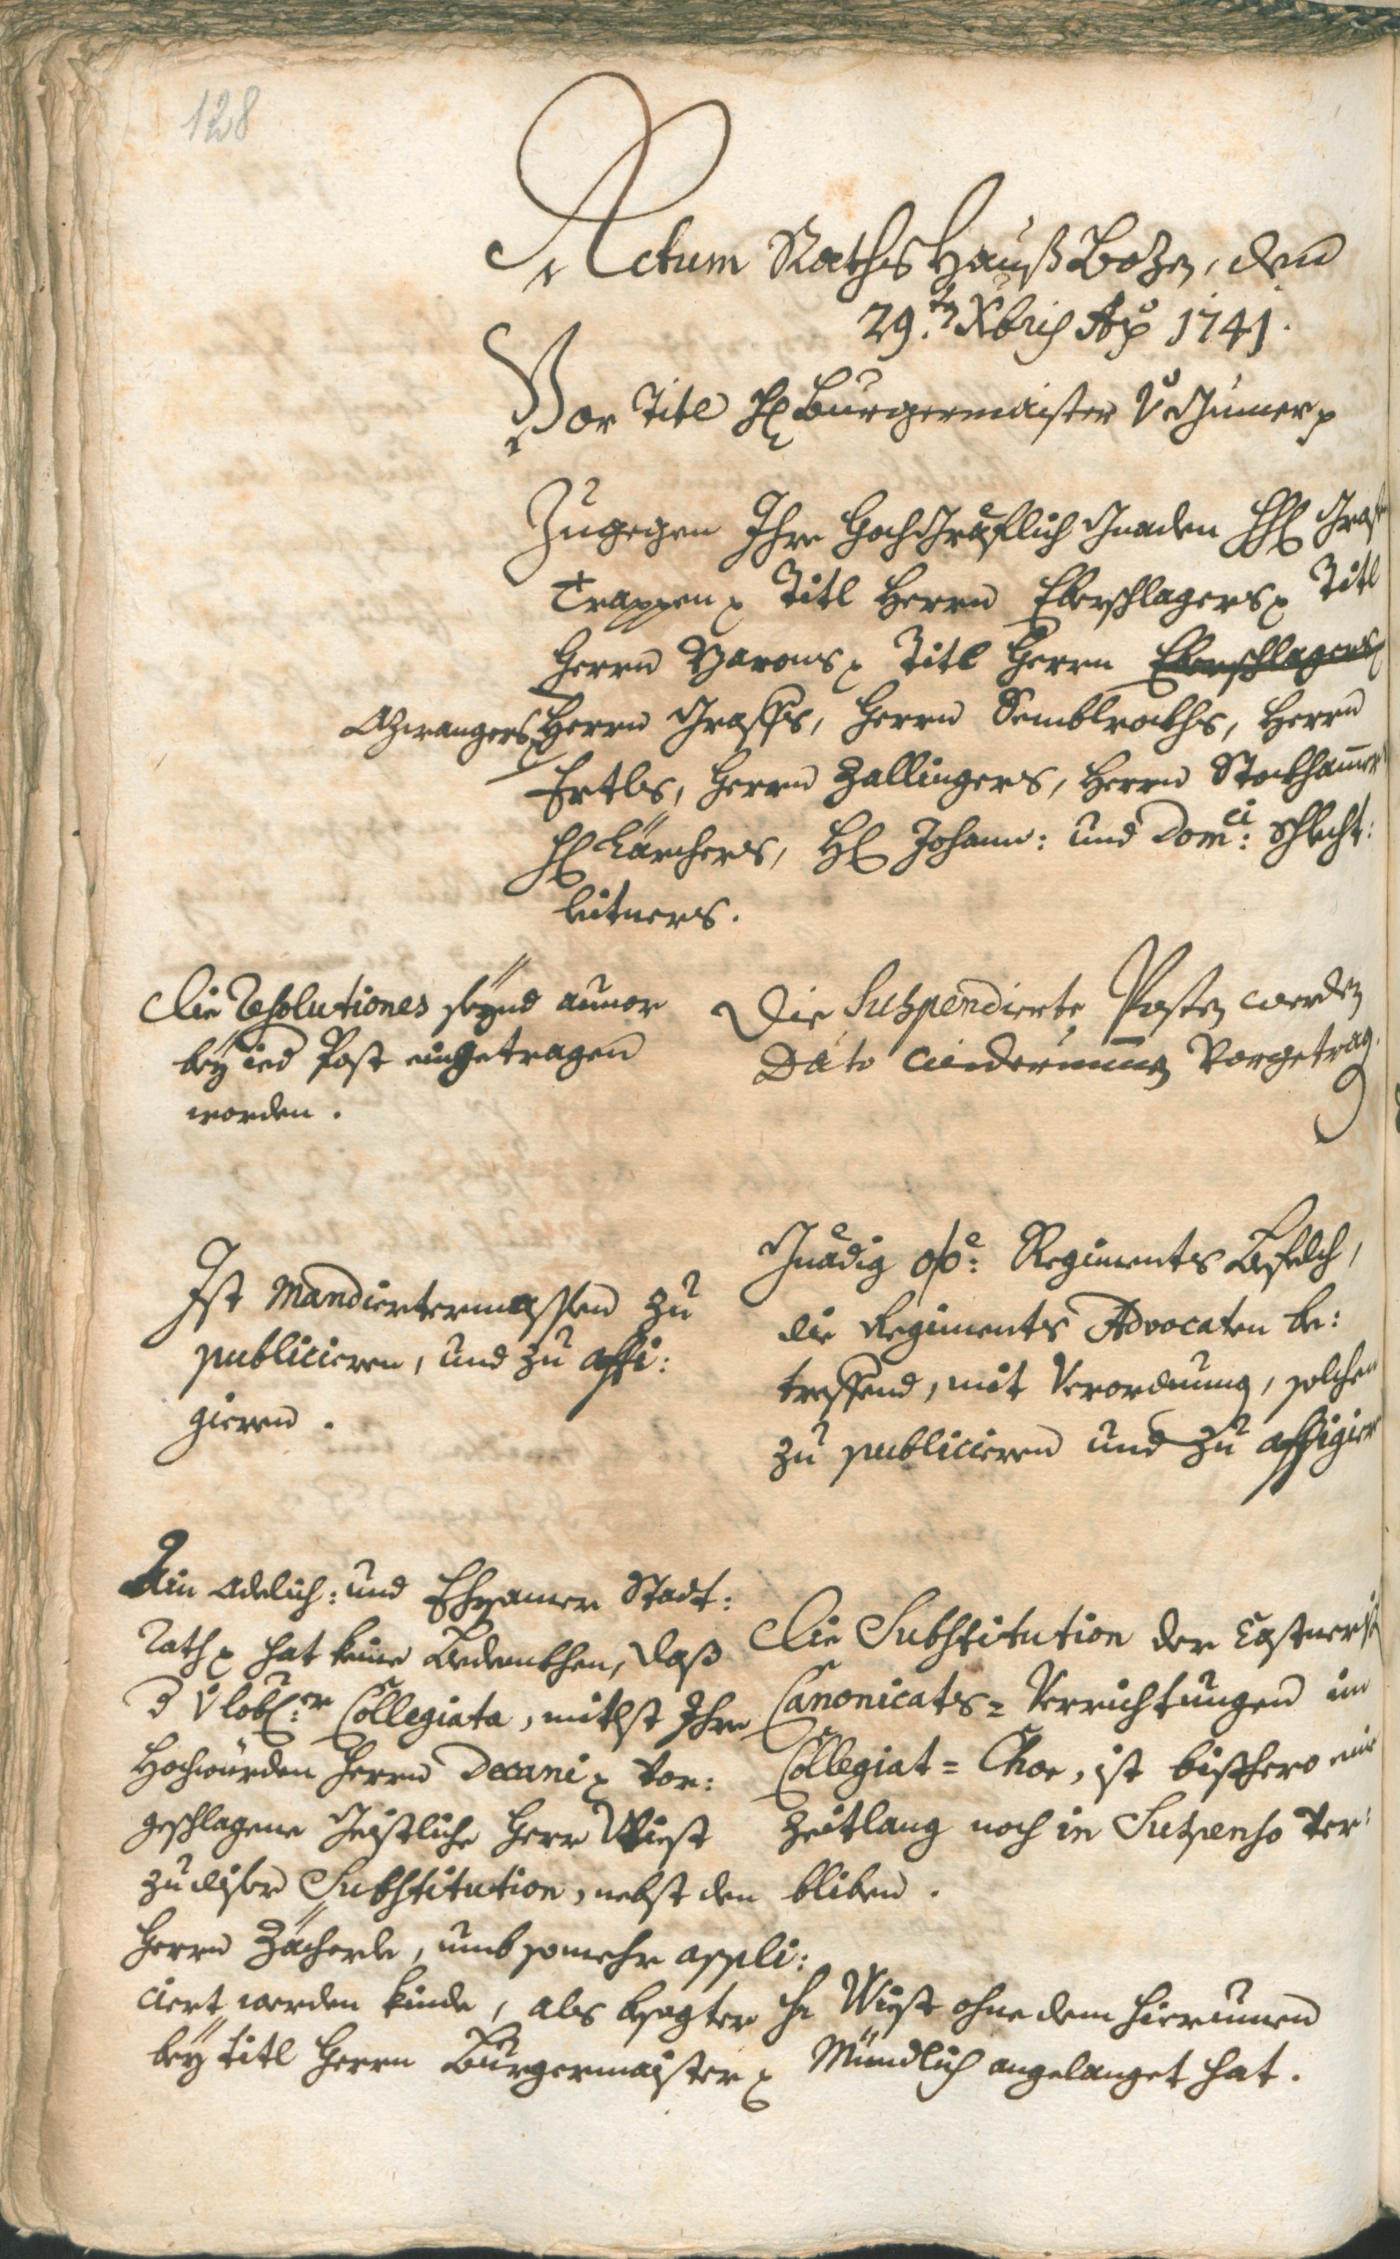 128
Actum Raths Hauß Bozen, den
29.ten Xbris Ao 1741.
Vor Titl H: Burgermaister V: Gumer p
Zugegen Ihro Hochgräflich Gnaden HH: Grafen
Trappen p Titl Herrn Eberschlagers p Titl
Herrn Barons p Titl Herrn Eberschlagers p
Azwangers Herrn Graffs, Herrn Semblroths, Herrn
Ertls, Herrn Zallingers, Herrn Stockhamers
H: Kärchers, H: Johann: und Domci: Schlecht:
leitners.
Die Resolutiones seynd annor
bey ied Post eingetragen
worden.
Die Suspendierte Posten werden
Dato widerumen vorgetrag.
Ist Mandiertermassen zu
publicieren, und zu affi:
gieren.
Gnädig oö: Regiments Befelch,
die Regiments Advocaten be:
treffend, mit Verordnung, solchen
zu publicieren und zu affigier
Ain Adelich: und Ehrsamer Stadt:
Rath p hat keine Bedenkhen, daß
V: löbl:er Collegiata, mitlst Ihro
Hochwürden Herrn Decani p vor:
geschlagene Geistliche Herr Wiest
zu diser Substitution, nebst den
Herrn Zächerle, umb somehr appli:
ciert werden kinde, als besagter H: Wiest ohne dem hierumen
bey Titl Herrn Burgermaister p Mündlich angelanget hat.
Die Substitution der Castnerisch
Canonicats=Verrichtungen im
Collegiat=Chor, ist bisshero eine
Zeitlang noch in Suspenso ver:
bliben.